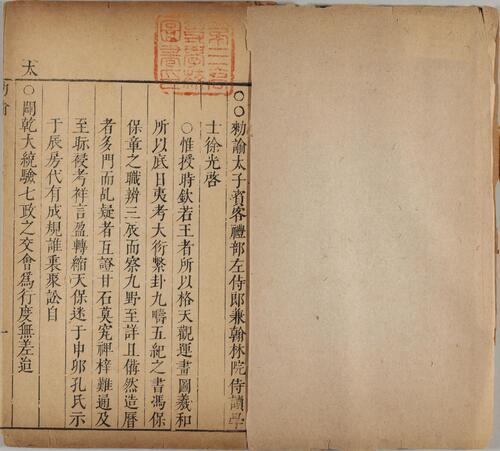 第二高
等學校
圖書印
○○勅諭太子賓客禮部左侍郎兼翰林院侍讀學
士徐光啓
○惟授時欽若王者所以格天觀運畫圖羲和
所以底日夷考大衍繫卦九疇五紀之書馮保
保章之職辨三辰而察九野至詳且備然造曆
者多門而乩疑者互證甘石莫究禆梓難通及
至眎祲考祥言盈轉縮天保迷于申卯孔氏示
于辰房代有成規誰衷聚訟自
○乾大統驗七政之交會為行度無差迨
太
一